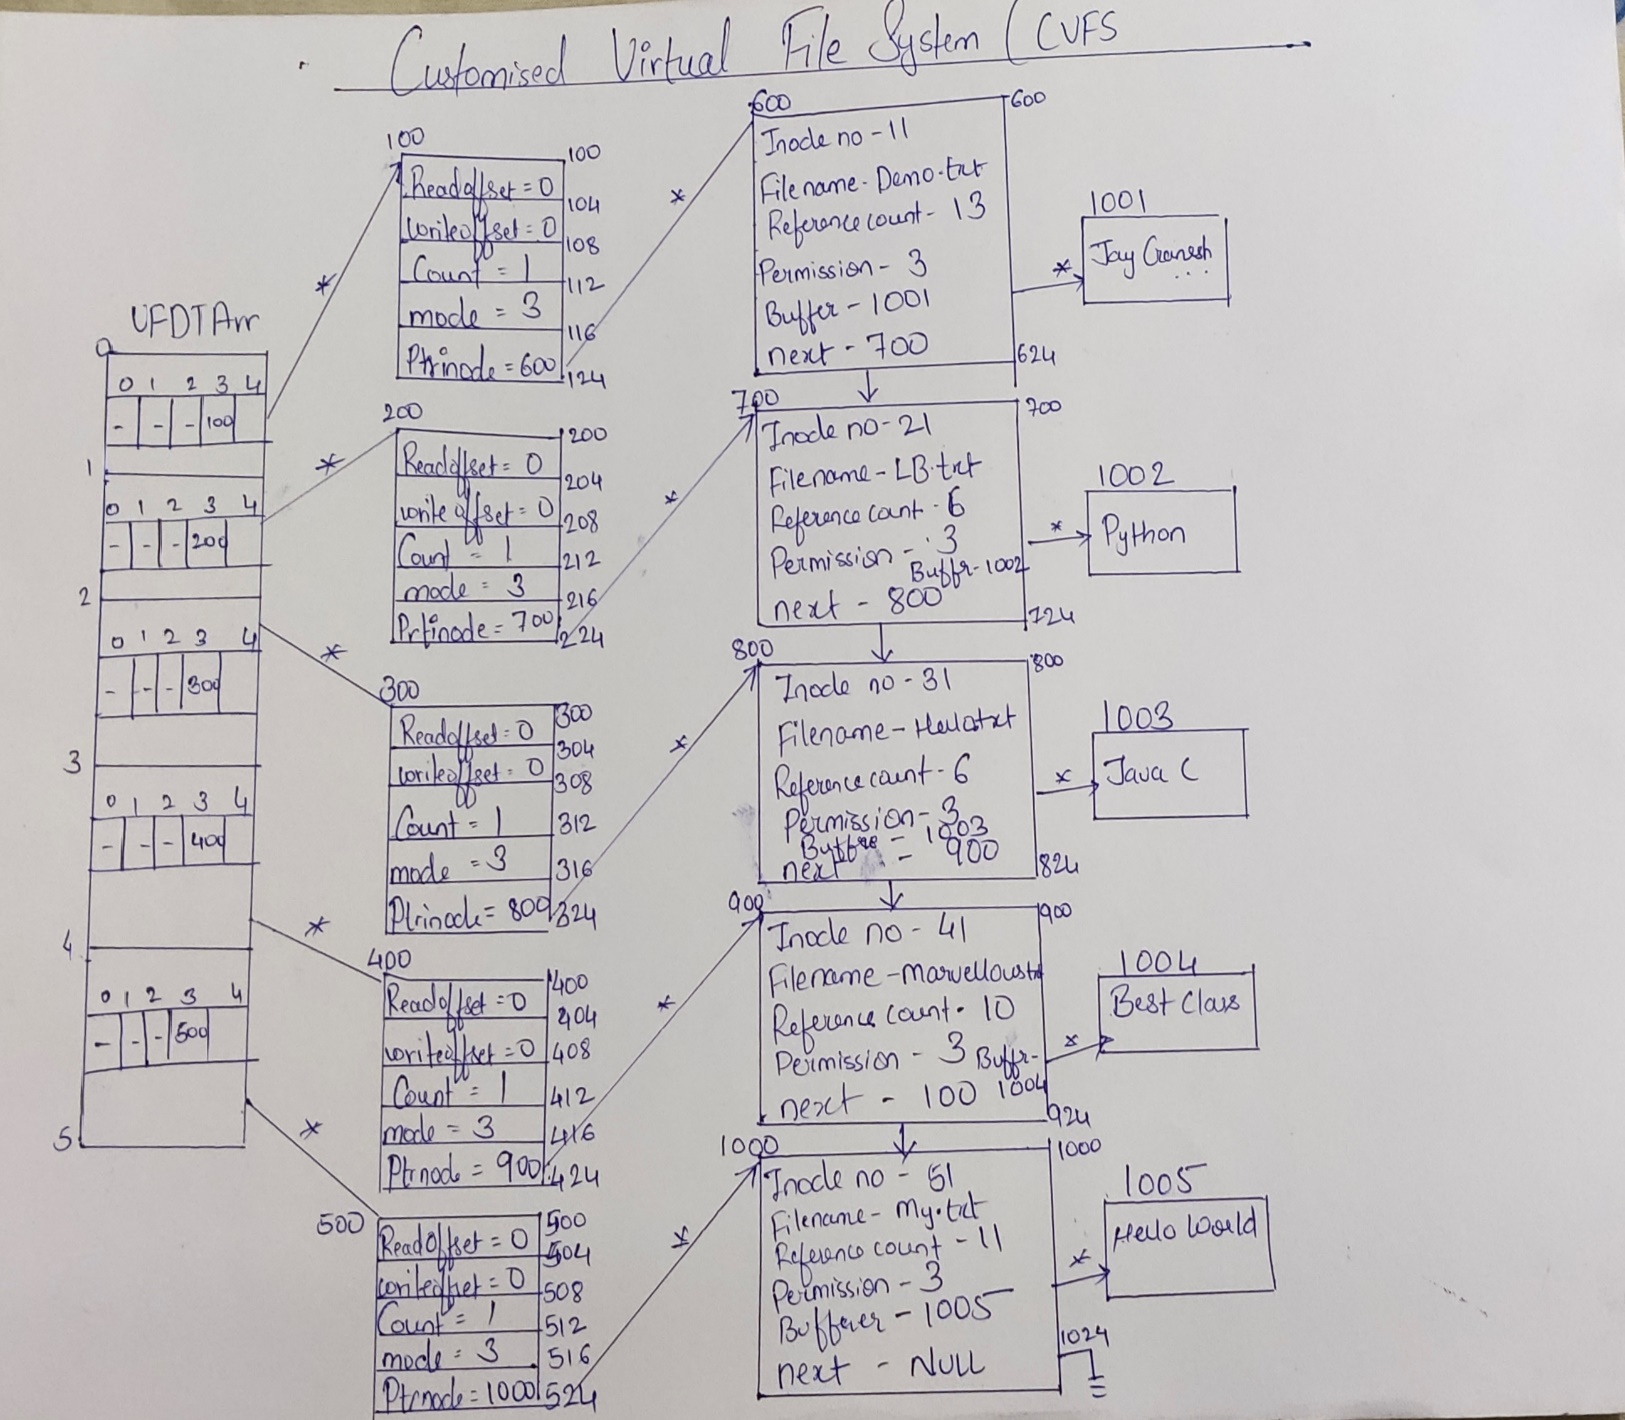 Customised Virtual File System (CVFS
UFDTArr
0
0 1 2 3 4
- - - 100
1
0 1 2 3 4
- - - 200
2
0 1 2 3 4
- - - 300
3
0 1 2 3 4
- - - 400
4
0 1 2 3 4
- - - 500
5
100
100
Readoffset = 0
104
writeoffset = 0
108
Count = 1
112
mode = 3
116
Ptrinode = 600
124
200
200
Readoffset = 0
204
write offset = 0
208
Count = 1
212
mode = 3
216
Prtinode = 700
224
300
300
Readoffset = 0
304
writeoffset = 0
308
Count = 1
312
mode = 3
316
Ptrinode = 800
324
400
400
Readoffset = 0
404
writeoffset = 0
408
Count = 1
412
mode = 3
416
Ptrnode = 900
424
500
500
ReadOffset = 0
504
writeoffset = 0
508
Count = 1
512
mode = 3
516
Ptrnode = 1000
524
600
600
Inode no - 11
Filename - Demo.txt
Reference count - 13
Permission - 3
Buffer - 1001
next - 700
624
700
700
Inode no - 21
Filename - LB.txt
Reference count - 6
Permission - 3
Buffr - 1002
next - 800
724
800
800
Inode no - 31
Filename - Hello.txt
Reference count - 6
Permission - 3
Buffre - 1003
next - 900
824
900
900
Inode no - 41
Filename - marvellous.txt
Reference count - 10
Permission - 3 Buffr-
next - 100 1004
924
1000
1000
Inode no - 51
Filename - My.txt
Reference count - 11
Permission - 3
Bufferer - 1005
next - NULL
1024
1001
Jay Ganesh
...
1002
Python
1003
Java C
1004
Best Class
1005
Hello World